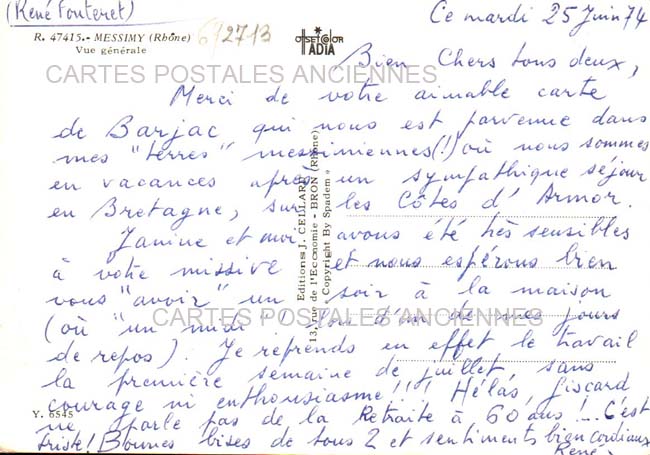 (René Fouteret)
Ce mardi 25 Juin 74
R. 47415.- MESSIMY (Rhône)
Vue générale
612713
OFFSETCOLOR
IADIA
CARTES POSTALES ANCIENNES
Bien Chers tous deux,
Merci de votre aimable carte
de Barjac, qui nous est parvenue dans
mes "terres" messiniennes(!) où nous sommes
en vacances après un sympathique séjour
en Bretagne, sur les Côtes d'Armor.
Janine et moi avons été très sensibles
à votre missive et nous espérons bien
vous "avoir" un soir à la maison
(où "un midi" lors d'un de mes jours
de repos). Je reprends en effet le travail
la première semaine de juillet, sans
courage ni enthousiasme!!! Hélas, Giscard
ne parle pas de la Retraite à 60 ans!... C'est
triste! Bonnes bises de tous 2 et sentiments bien cordiaux
René.
Editions J. CELLARD
13, rue de l'Economie - BRON (Rhône)
« Copyright By Spadem »
CARTES POSTALES ANCIENNES
Y. 6545